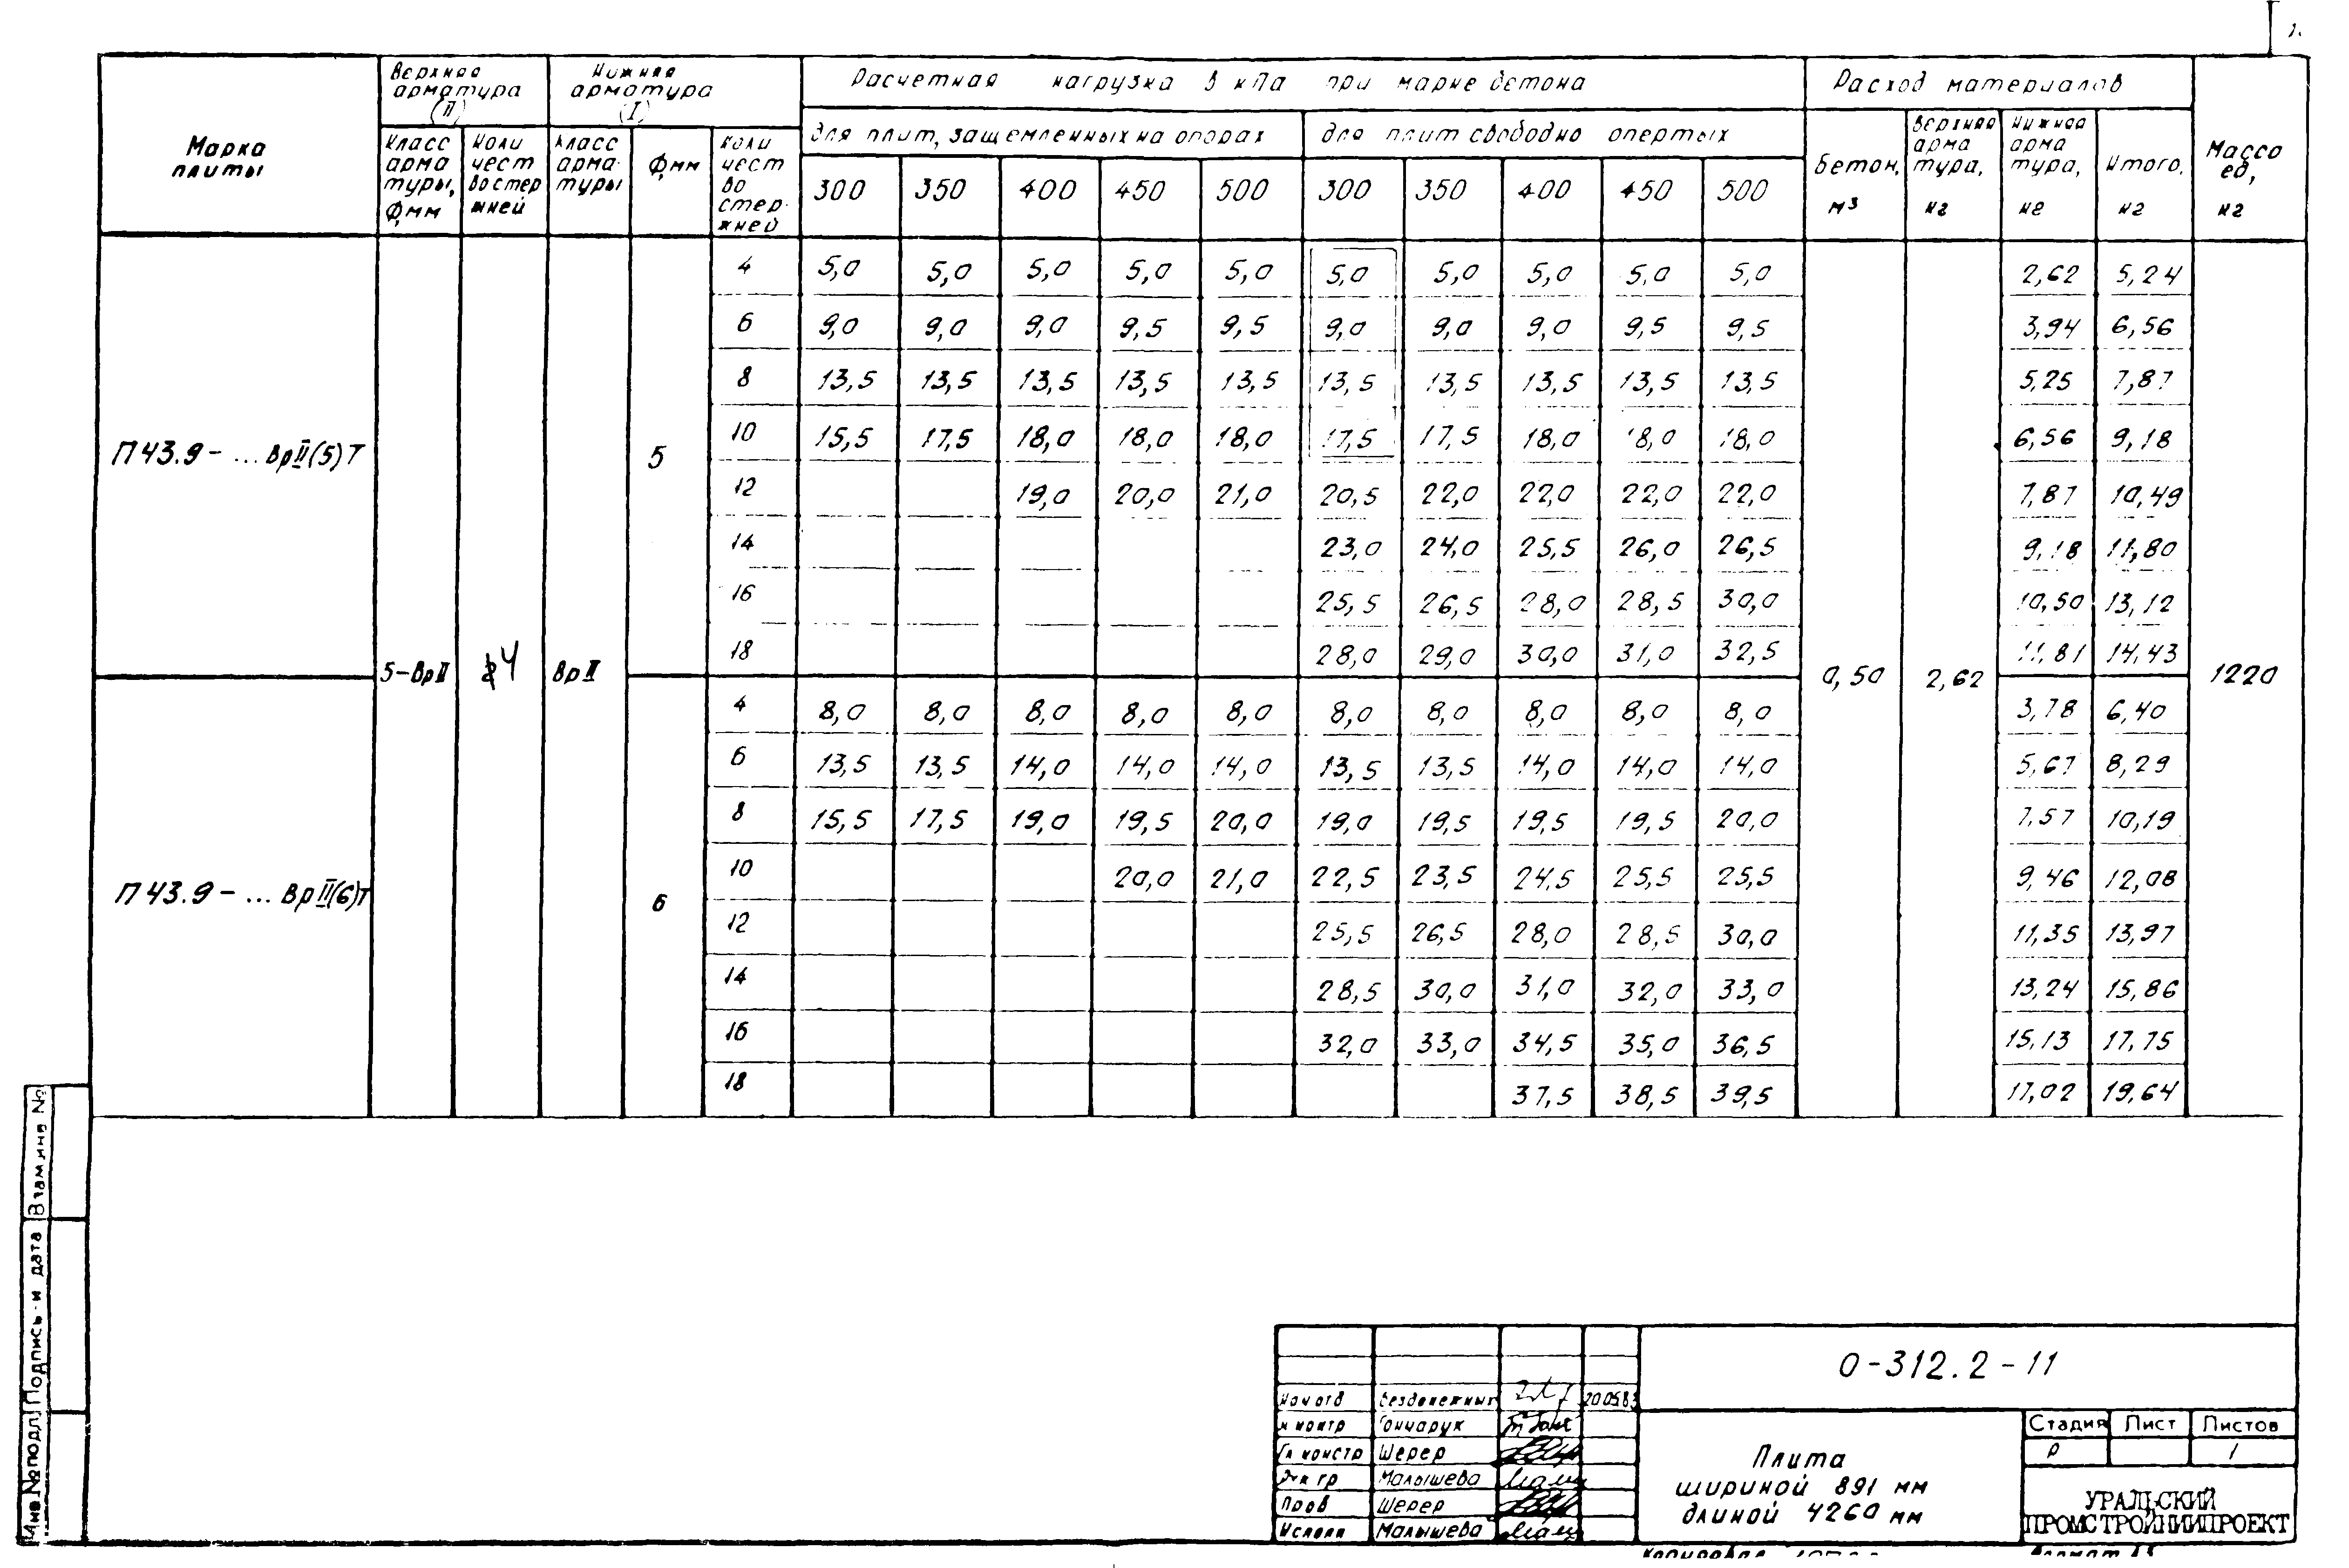 Марка плиты
Верхняя арматура (II)
Нижняя арматура (I)
Расчетная нагрузка в кПа при марке бетона
Расход материалов
Масса ед, кг
Класс арматуры, Ф,мм
Количество стержней
Класс арматуры
Ф,мм
Количество стержней
для плит, защемленных на опорах
для плит свободно опертых
300 350 400 450 500 300 350 400 450 500
Бетон, м³
Верхняя арматура, кг
Нижняя арматура, кг
Итого, кг
П43.9-...ВрII(5)Т
5-ВрII
4
ВрII
5
0,50
2,62
1220
4 5,0 5,0 5,0 5,0 5,0 5,0 5,0 5,0 5,0 5,0 2,62 5,24
6 9,0 9,0 9,0 9,5 9,5 9,0 9,0 9,0 9,5 9,5 3,94 6,56
8 13,5 13,5 13,5 13,5 13,5 13,5 13,5 13,5 13,5 13,5 5,25 7,87
10 15,5 17,5 18,0 18,0 18,0 17,5 17,5 18,0 18,0 18,0 6,56 9,18
12 19,0 20,0 21,0 20,5 22,0 22,0 22,0 22,0 7,87 10,49
14 23,0 24,0 25,5 26,0 26,5 9,18 11,80
16 25,5 26,5 28,0 28,5 30,0 10,50 13,12
18 28,0 29,0 30,0 31,0 32,5 11,81 14,43
П43.9-...ВрII(6)Т
6
4 8,0 8,0 8,0 8,0 8,0 8,0 8,0 8,0 8,0 8,0 3,78 6,40
6 13,5 13,5 14,0 14,0 14,0 13,5 13,5 14,0 14,0 14,0 5,67 8,29
8 15,5 17,5 19,0 19,5 20,0 19,0 19,5 19,5 19,5 20,0 7,57 10,19
10 20,0 21,0 22,5 23,5 24,5 25,5 25,5 9,46 12,08
12 25,5 26,5 28,0 28,5 30,0 11,35 13,97
14 28,5 30,0 31,0 32,0 33,0 13,24 15,86
16 32,0 33,0 34,5 35,0 36,5 15,13 17,75
18 37,5 38,5 39,5 17,02 19,64
Инв № подл
Подпись и дата
Взам инв №
0-312.2-11
Нач отд Безденежных 20.05.83
Н контр Гончарук
Гл констр Шерер
Рук гр Малышева
Пров Шерер
Исполн Малышева
Плита
шириной 891 мм
длиной 4260 мм
Стадия Лист Листов
Р 1
УРАЛЬСКИЙ
ПРОМСТРОЙНИИПРОЕКТ